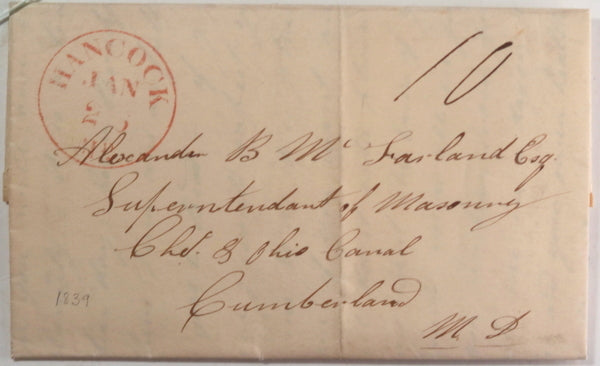 HANCOCK
JAN
10
Alexander B Mc Farland Esq.
Superntendant of Masonry
Che's. & Ohio Canal
Cumberland
1839
M. D